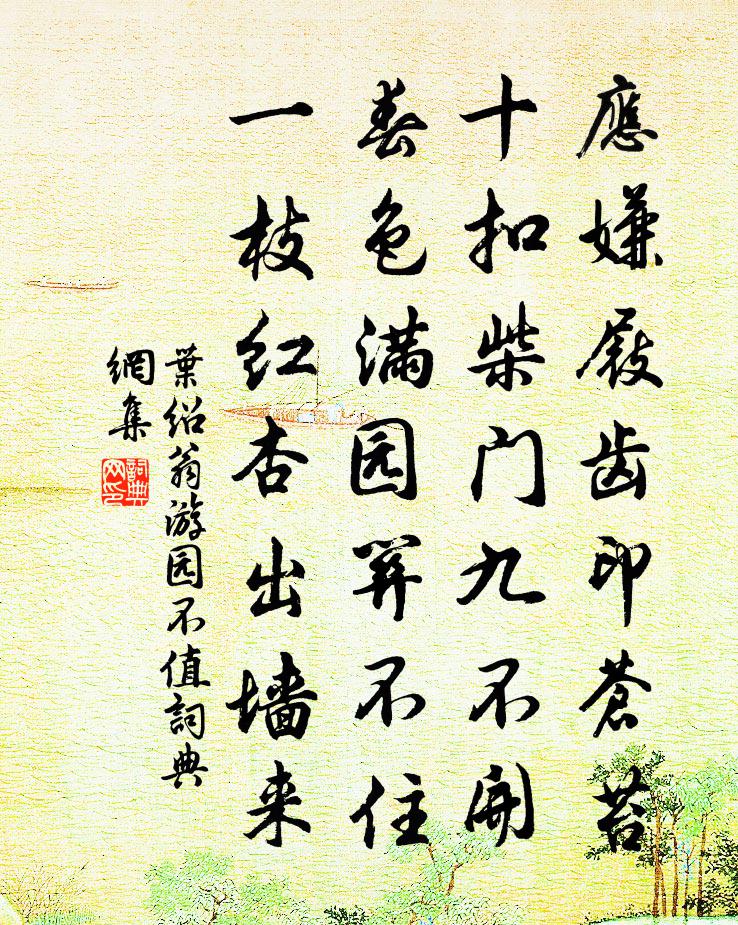 應嫌屐齿印蒼苔
十扣柴门九不開
春色满园関不住
一枝红杏出墙来
葉绍翁游园不值詞典
網集
詞典
网印